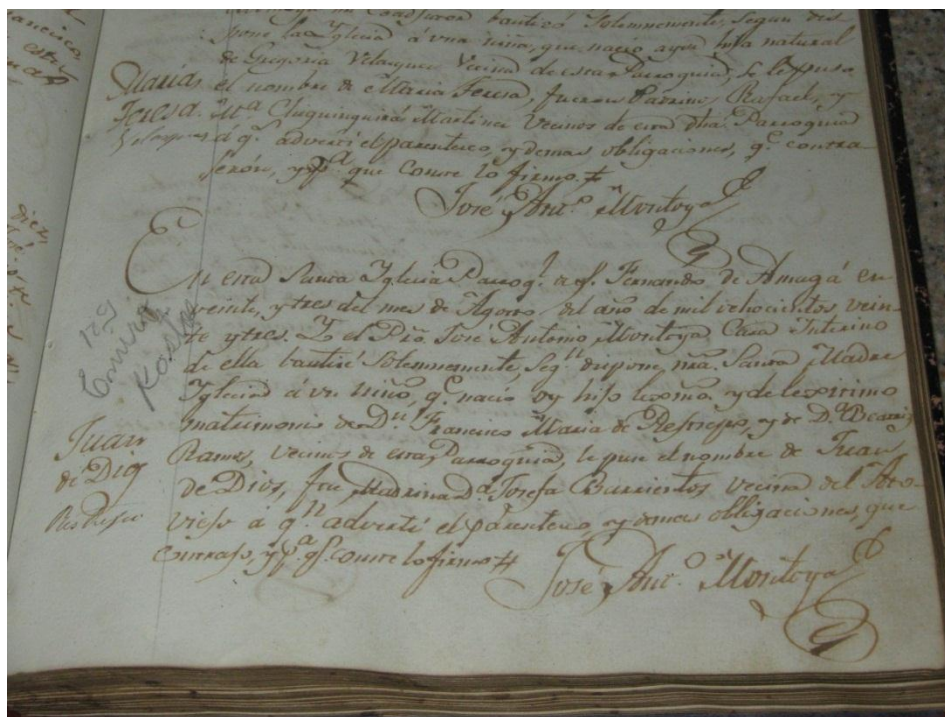 Coadjutor bautizó Solemnemente, Segun dis-
pone la Yglesia á vna niña, que nacio ayer hija natural
de Gregoria Velasquez Vecina de esta Parroquia, se le puso
el nombre de Maria Teresa, fueron Padrinos Rafael, y
Mª Chiquinquirá Martinez Vecinos de esta dha Parroquia
á qs advertí el parentesco, y demas obligaciones, qe contra-
jeron, y pª que Conste lo firmo.
José Antº Montoya
Maria
Teresa
Velasquez
En esta Santa Yglesia Parroql de Sn Fernando de Amagá en
veinte, y tres del mes de Agosto del año de mil ochocientos vein-
te y tres. Yo el Pro José Antonio Montoya Cura Interino
de ella bautizé Solemnemente, Segn dispone nra. Santa Madre
Yglesia á vn niño, qe nació oy hijo lexmo. y de lexitimo
matrimonio de Dn Francisco Maria de Restrepo, y de Dª Beatriz
Ramos, vecinos de esta Parroquia, le puse el nombre de Juan
de Dios, fue Madrina Dª Josefa Barrientos vecina del Ato-
viejo á qn advertí el parentesco, y demas obligaciones, que
contrajo, y pª qe conste lo firmo
José Antº Montoya
Juan
de Dios
Restrepo